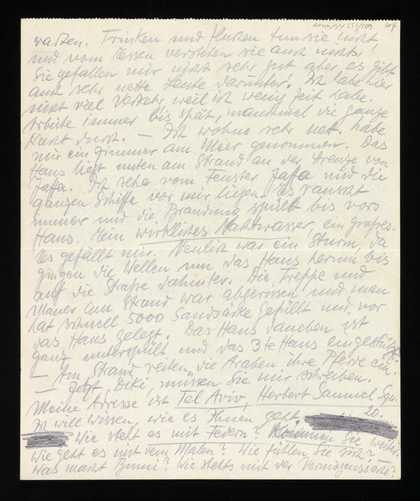 warten. Trinken und Huren tun sie nicht
und vom Essen verstehen sie auch nichts!
Sie gefallen mir nicht sehr gut aber es gibt
auch sehr nette Leute darunter. Ich habe hier
nicht viel Verkehr, weil ich wenig Zeit habe.
Arbeite immer bis spät, manchmal die ganze
Nacht durch. — Ich wohne sehr nett, habe
mir ein Zimmer am Meer genommen. Das
Haus liegt unten am Strand an der Grenze von
Jaffa. Ich sehe vom Fenster Jaffa und die
ganzen Schiffe vor mir liegen. Es rauscht
immer und die Brandung spült bis vors
Haus. Kein wirkliches Nachtwasser ein großes.
Es gefällt mir. Neulich war ein Sturm, da
gingen die Wellen um das Haus herum bis
auf die Straße dahinter. Die Treppe und
Mauer am Strand war abgerissen und man
hat schnell 5000 Sandsäcke gefüllt und vor
das Haus gelegt. Das Haus daneben ist
ganz unterspült und das 3te Haus eingestürzt.
— Am Strand reiten die Araben ihre Pferde ein.
— Jetzt, müssen Sie mir schreiben.
Meine Adresse ist Tel Aviv, Herbert Samuel Squ.
20.
Ich will wissen, wie es Ihnen geht.
Wie steht es mit Federn? Kommen Sie weiter.
Wie geht es mit dem Malen? Wie fühlen Sie sich?
Was macht? Wie stehts mit der Vermögenssache?